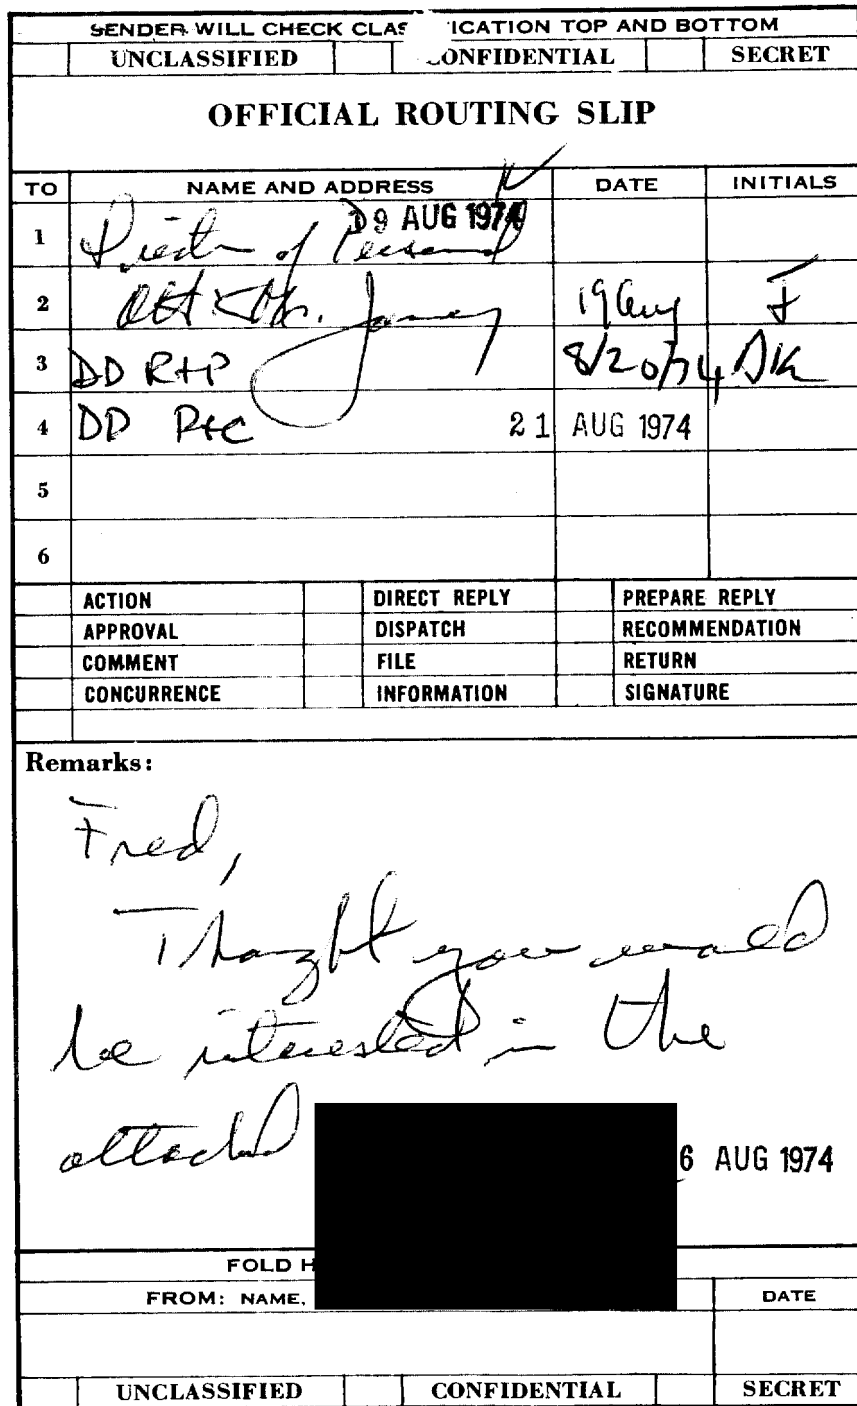 SENDER WILL CHECK CLAS ICATION TOP AND BOTTOM
UNCLASSIFIED CONFIDENTIAL SECRET
OFFICIAL ROUTING SLIP
TO NAME AND ADDRESS DATE INITIALS
19 AUG 1974
1 Director of Personnel
2 Att: Mr. 19 Aug F
3 DD R+P 8/20/74 DK
4 DD P+C 21 AUG 1974
5
6
ACTION DIRECT REPLY PREPARE REPLY
APPROVAL DISPATCH RECOMMENDATION
COMMENT FILE RETURN
CONCURRENCE INFORMATION SIGNATURE
Remarks:
Fred,
Thought you would
be interested in the
attached
6 AUG 1974
FOLD H
FROM: NAME, DATE
UNCLASSIFIED CONFIDENTIAL SECRET